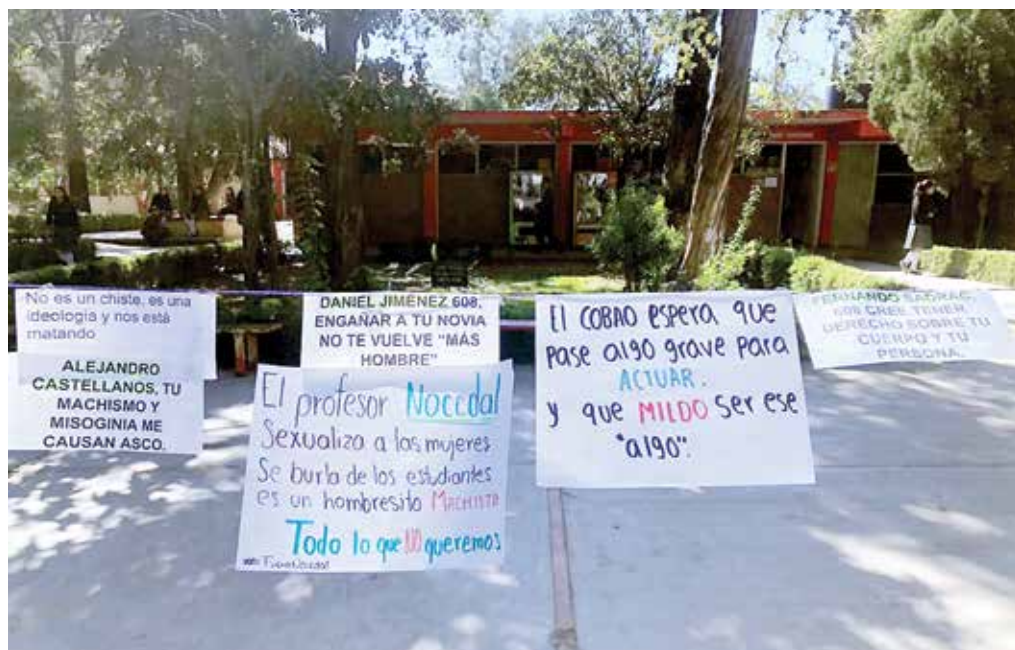 No es un chiste, es una
ideología y nos está
matando
ALEJANDRO
CASTELLANOS, TU
MACHISMO Y
MISOGINIA ME
CAUSAN ASCO.
DANIEL JIMÉNEZ 608,
ENGAÑAR A TU NOVIA
NO TE VUELVE “MÁS
HOMBRE”
El profesor Nocedal
Sexualiza a las mujeres
Se burla de los estudiantes
es un hombresito MACHISTA
Todo lo que NO queremos
El COBAO espera que
pase algo grave para
ACTUAR.
y que MIEDO ser ese
"algo".
FERNANDO
608 CREE TENER
DERECHO SOBRE TU
CUERPO Y TU
PERSONA.